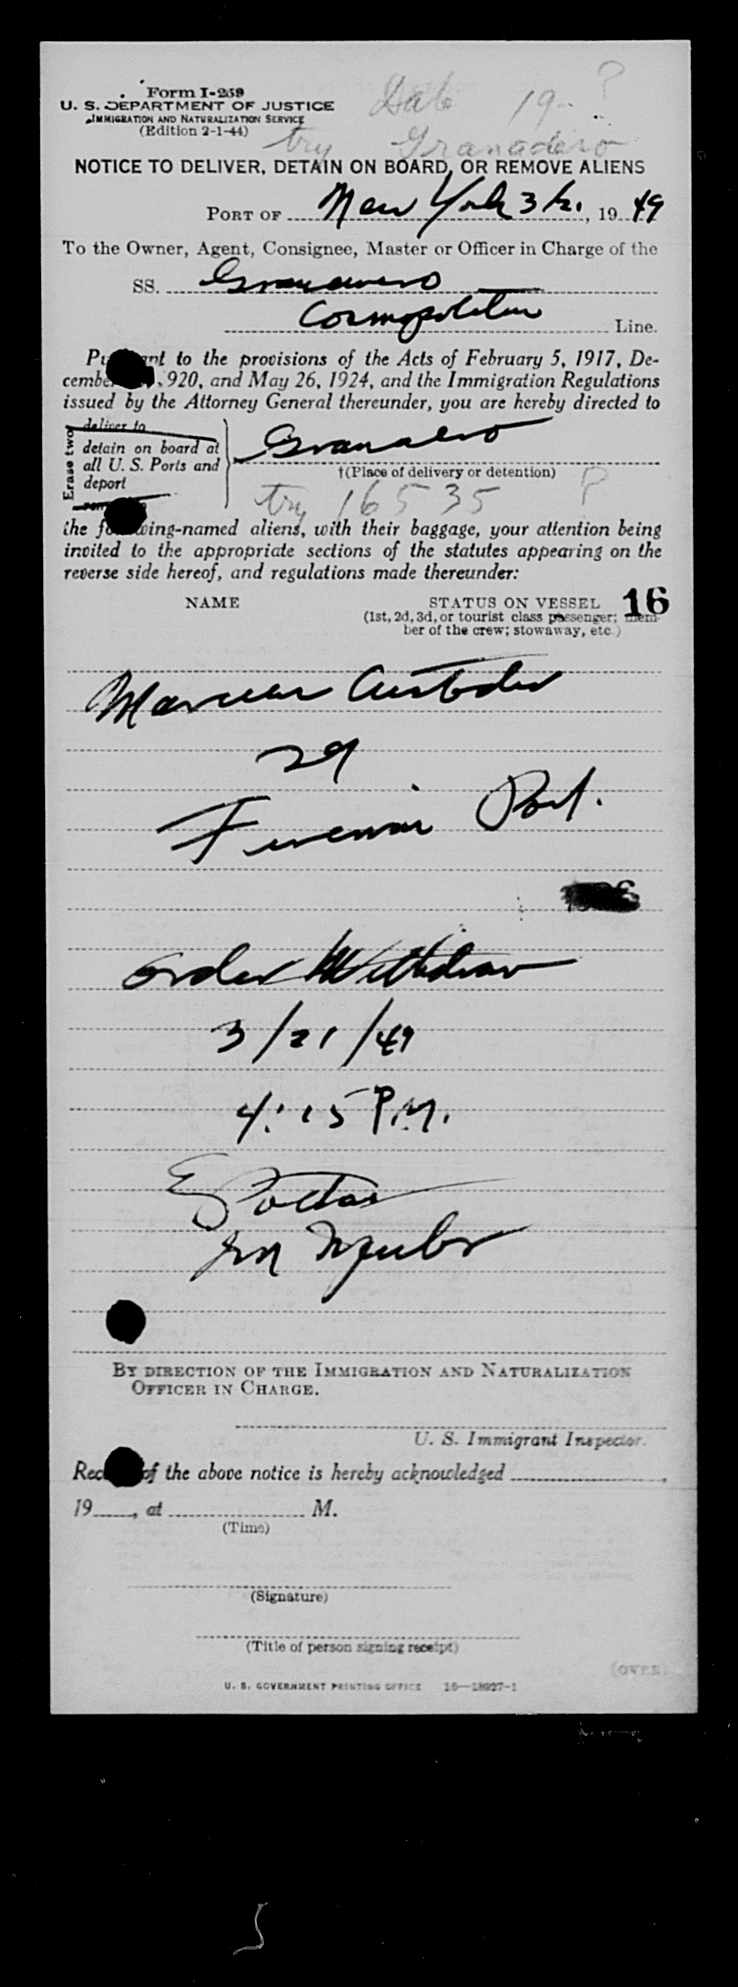 Form I-259
U. S. DEPARTMENT OF JUSTICE
IMMIGRATION AND NATURALIZATION SERVICE
(Edition 2-1-44)
Date 19- ?
try Granadero
NOTICE TO DELIVER, DETAIN ON BOARD, OR REMOVE ALIENS
PORT OF New York 3/2, 1949
To the Owner, Agent, Consignee, Master or Officer in Charge of the
SS. Granadero
Cosmopolitan Line.
Pursuant to the provisions of the Acts of February 5, 1917, De-
cember 920, and May 26, 1924, and the Immigration Regulations
issued by the Attorney General thereunder, you are hereby directed to
Erase two
deliver to
detain on board at
all U. S. Ports and
deport
remove
Granadero
†(Place of delivery or detention)
try 16535 ?
the following-named aliens, with their baggage, your attention being
invited to the appropriate sections of the statutes appearing on the
reverse side hereof, and regulations made thereunder:
NAME STATUS ON VESSEL 16
(1st, 2d, 3d, or tourist class passenger; mem-
ber of the crew; stowaway, etc.)
29
Fireman Port.
Order Withdrawn
3/21/49
4:15 P.M.
BY DIRECTION OF THE IMMIGRATION AND NATURALIZATION
OFFICER IN CHARGE.
U. S. Immigrant Inspector.
Receipt of the above notice is hereby acknowledged
19, at M.
(Time)
(Signature)
(Title of person signing receipt)
(OVER)
U. S. GOVERNMENT PRINTING OFFICE 16—18927-1